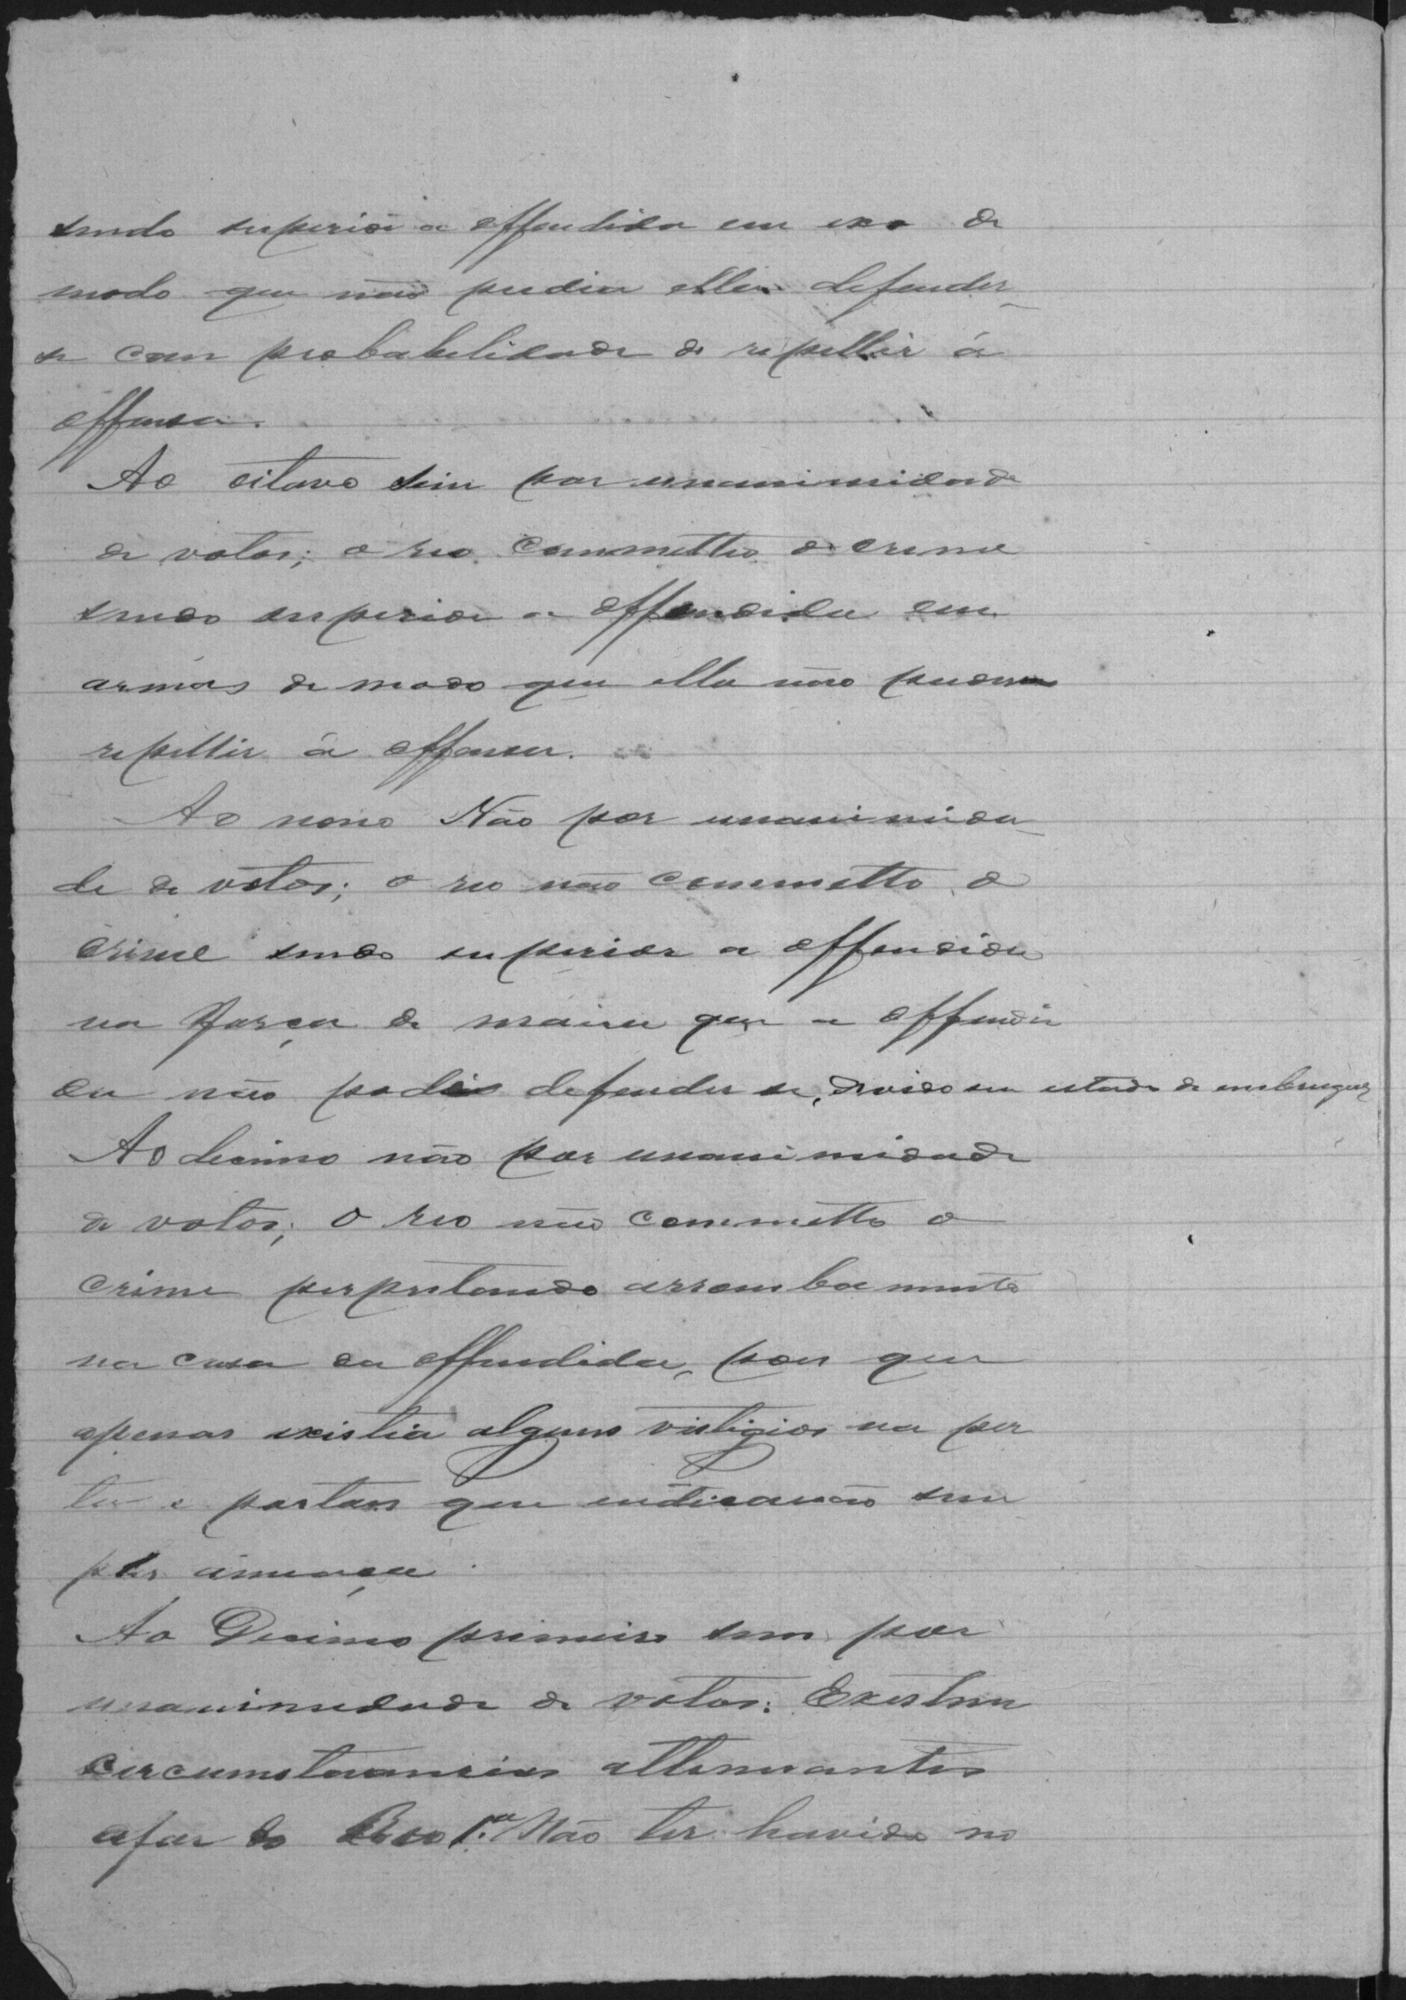 sendo superior a offendida em sexo de
modo que não pudia ella defender
se com probabelidade de repellir á
offensa.
Ao oitavo sim por unanimidade
de votos; o reo commetteo o crime
sendo superior a offendida em
armas de modo que ella não pudesse
repellir á offensa.
Ao nono Não por unanimida
de de votos; o reo não commetteo o
crime sendo superior a offendida
na força de maneira que a offendi
da não podia defender se, devido seu estado de embriaguez
Ao decimo não por unanimidade
de votos; o reo não commetteo o
crime perpetrando arrombamento
na casa da offendida, pois que
apenas existia alguns vistigios na por
ta e portaes que indicavão sim
ples ameaça.
Ao Decimo primeiro sim por
unanimidade de votos: Existem
circumstancias attenuantes
afavor do Reo 1.ª Não ter havido no